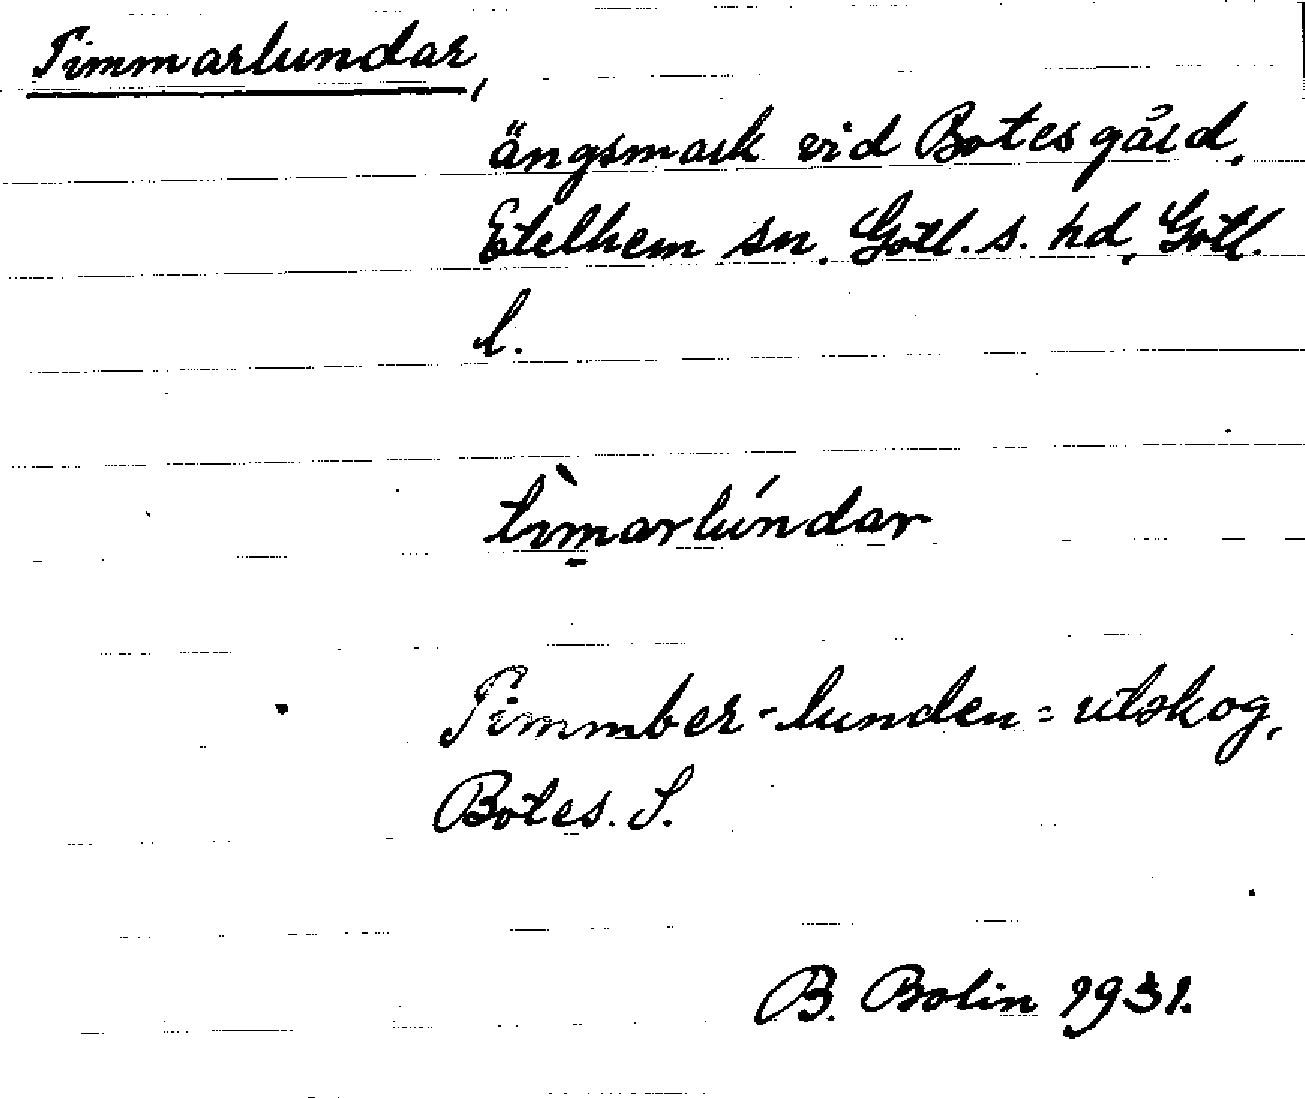 Timmarlundar,
ängsmark vid Botes gård,
Etelhem sn. Gotl. s. hd, Gotl.
l.
tìm̱arlúndar
Timmber-lunden = utskog,
Botes. S.
B. Bolin 1931.